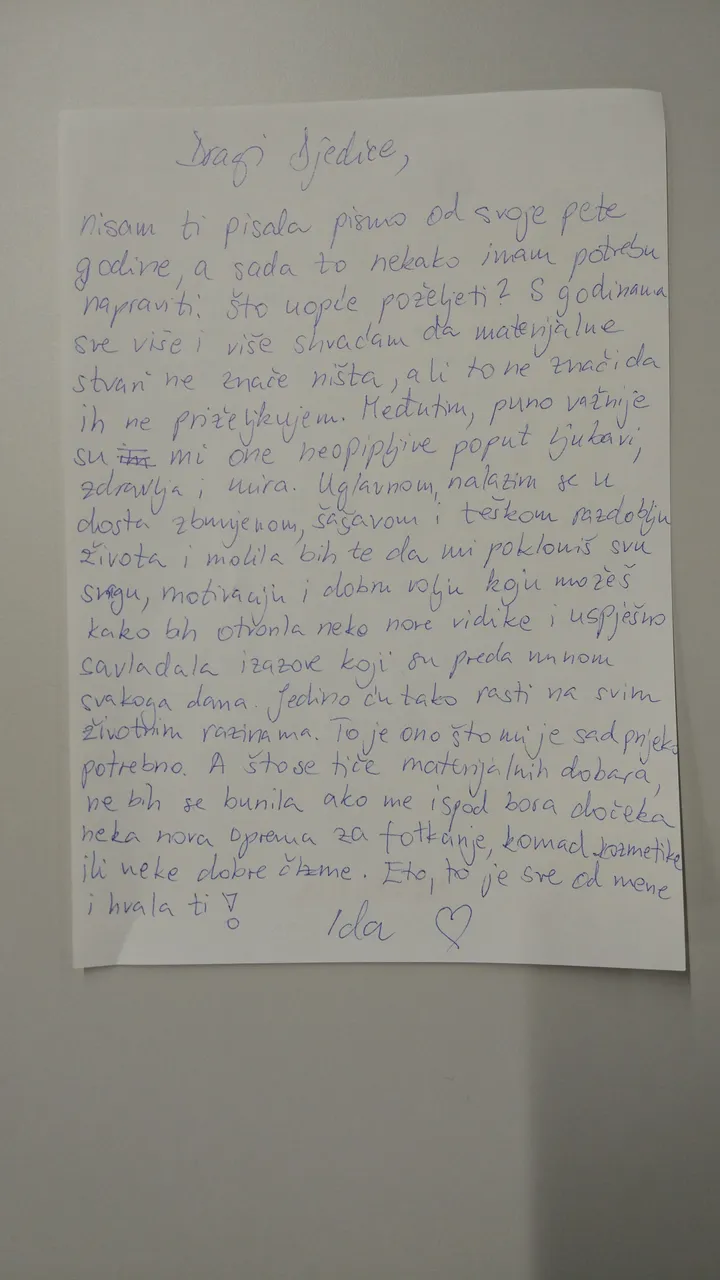 Dragi Djedice,
nisam ti pisala pismo od svoje pete
godine, a sada to nekako imam potrebu
napraviti. Što uopće poželjeti? S godinama
sve više i više shvaćam da materijalne
stvari ne znače ništa, ali to ne znači da
ih ne priželjkujem. Međutim, puno važnije
su mi one neopipljive poput ljubavi,
zdravlja i mira. Uglavnom, nalazim se u
dosta zbunjenom, šašavom i teškom razdoblju
života i molila bih te da mi pokloniš svu
snagu, motivaciju i dobru volju koju možeš
kako bih otvorila neko nove vidike i uspješno
savladala izazove koji su preda mnom
svakoga dana. Jedino ću tako rasti na svim
životnim razinama. To je ono što mi je sad prijeko
potrebno. A što se tiče materijalnih dobara,
ne bih se bunila ako me ispod bora dočeka
neka nova oprema za fotkanje, komad kozmetike
ili neke dobre čizme. Eto, to je sve od mene
i hvala ti!
Ida ♡